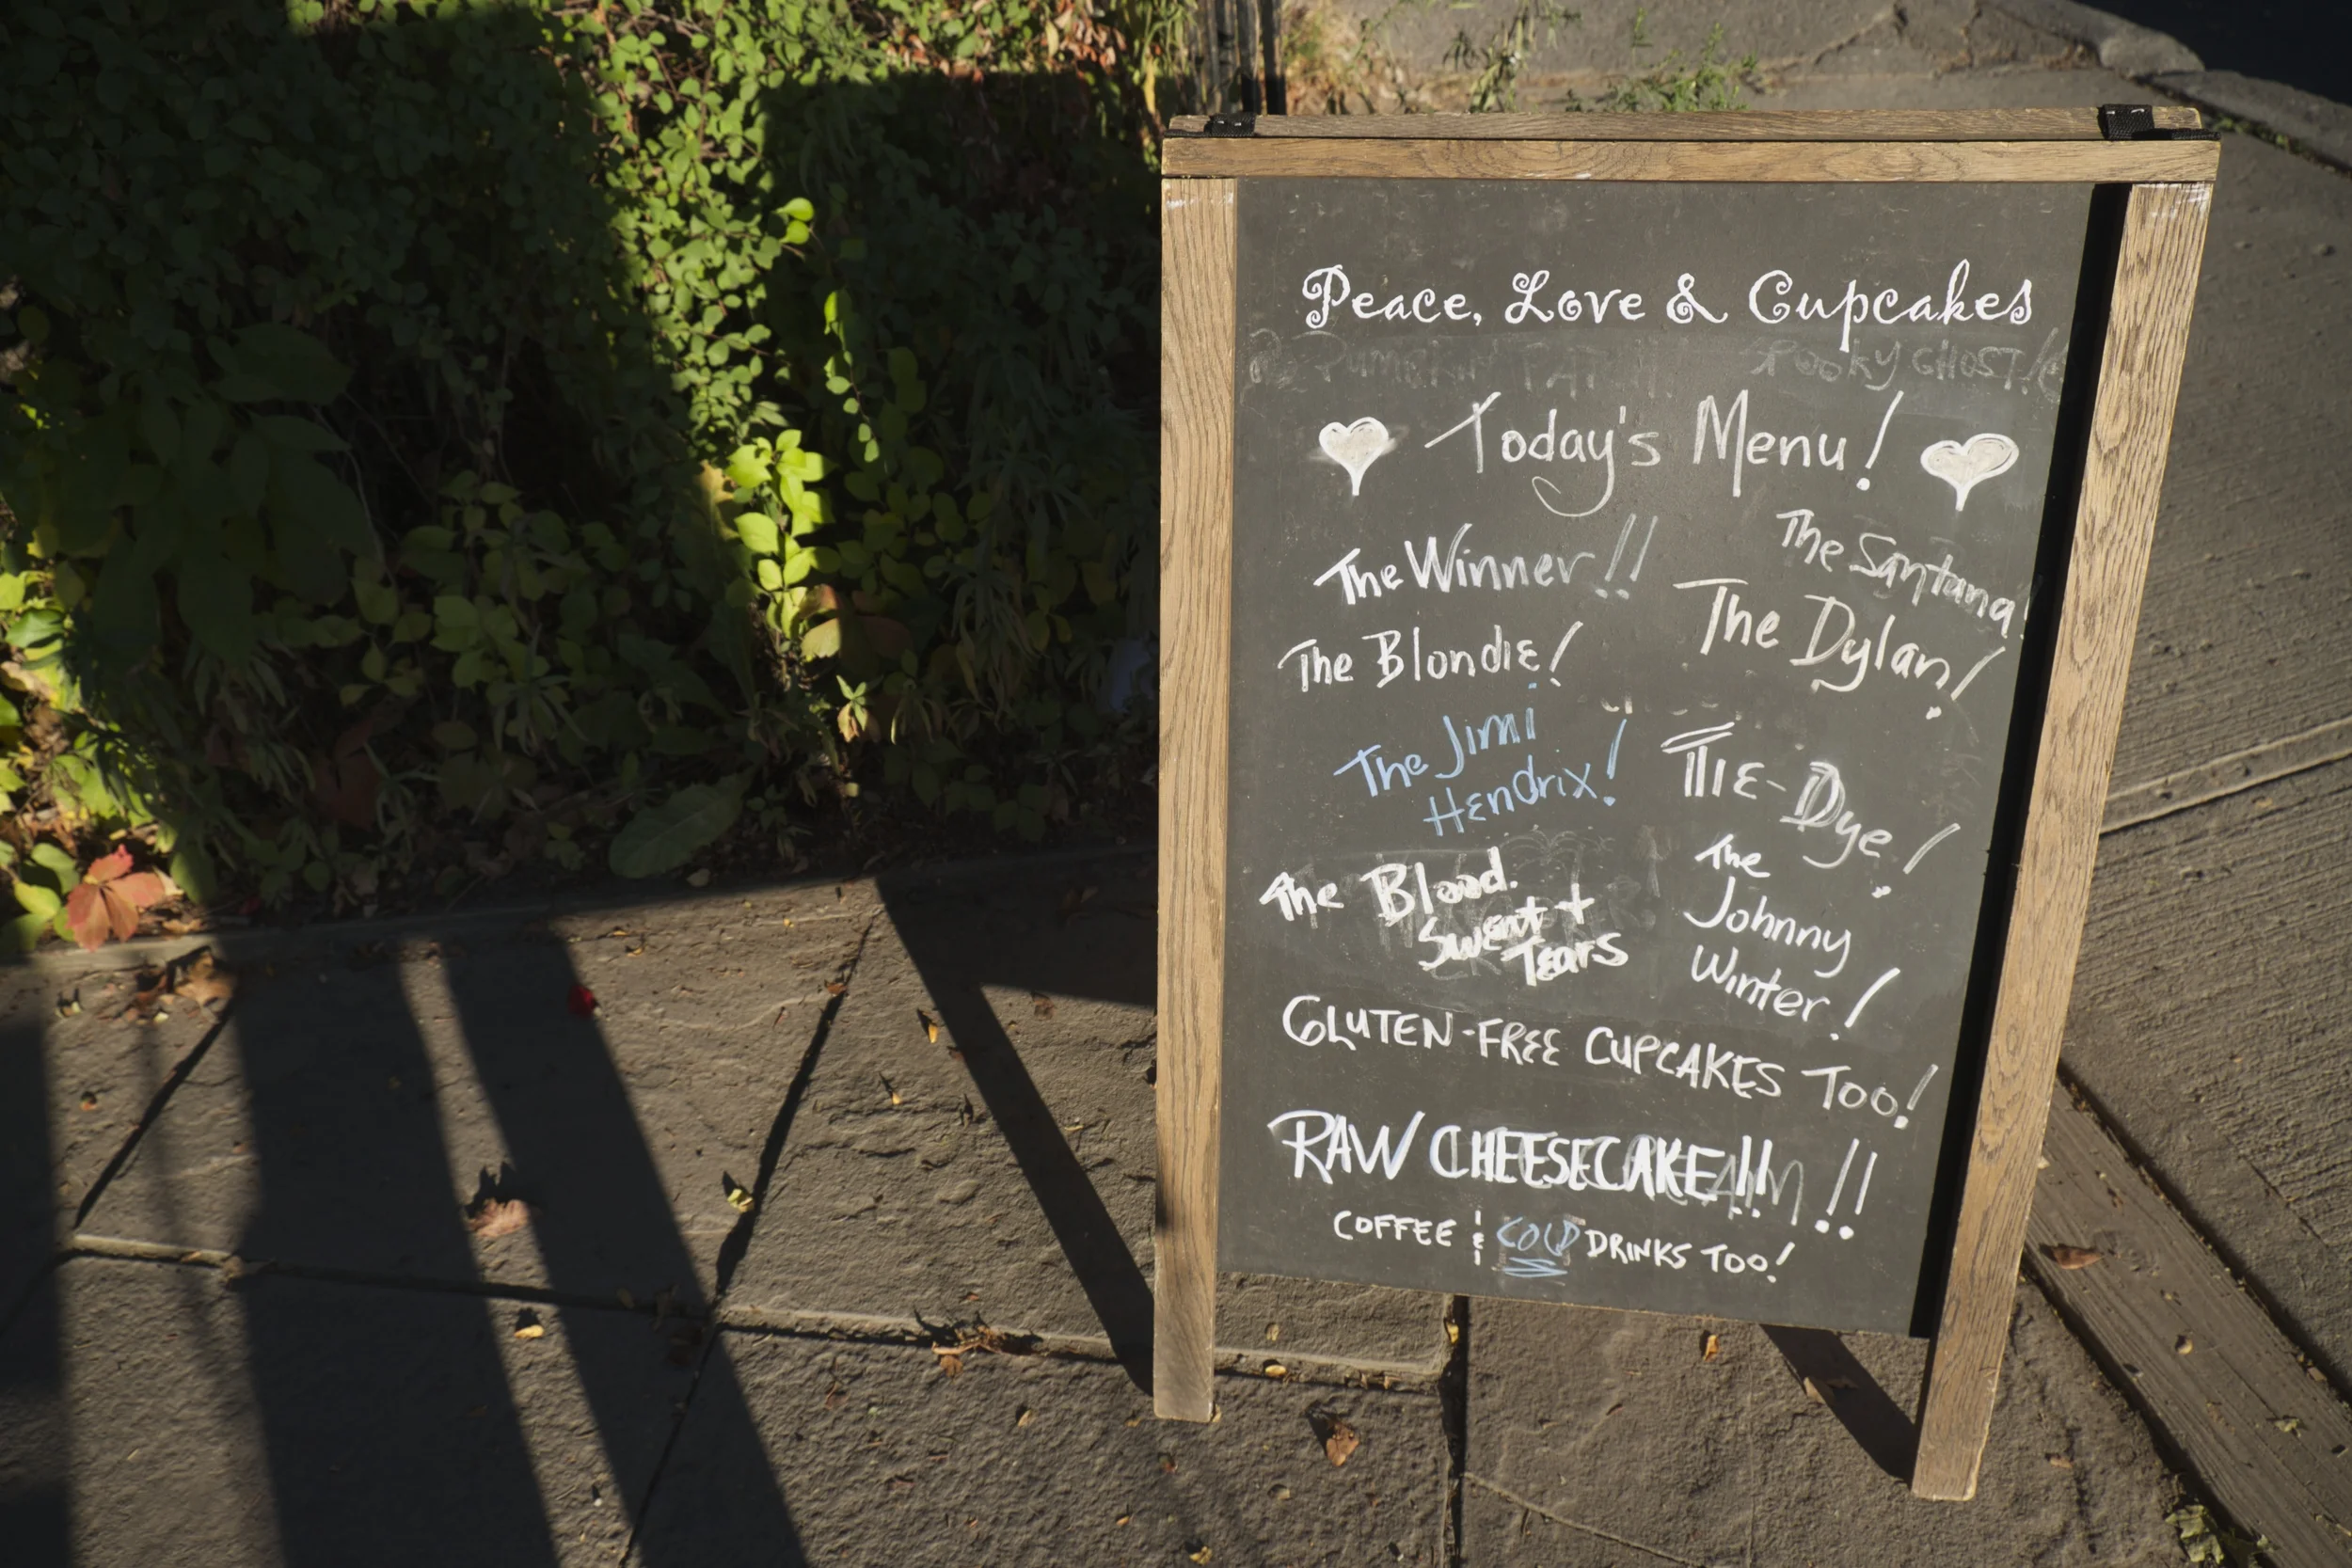 Peace, Love & Cupcakes
PUMPKIN PATCH SPOOKY GHOST!
Today's Menu!
The Winner!!
The Blondie!
The Jimi
Hendrix!
The Blood.
Sweat +
Tears
The Santana!
The Dylan!
TIE-Dye!
The
Johnny
Winter!
GLUTEN-FREE CUPCAKES TOO!
RAW CHEESECAKE!! !!
COFFEE & COLD DRINKS TOO!